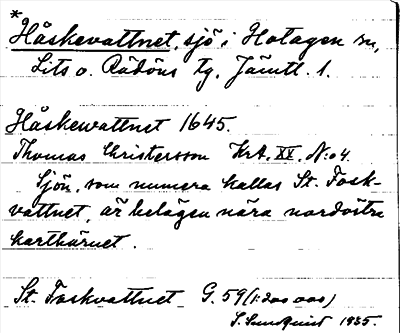 *
Håskevattnet, sjö i Hotagen sn,
Lits o. Rödöns tg, Jämtl. l.
Håskewattnet 1645.
Thomas Christersson KrA. XX. N:o 4.
Sjön, som numera kallas St. Fosk-
vattnet, är belägen nära nordöstra
karthörnet.
St. Foskvattnet G. 59 (1:200 000)
S. Sundquist 1935